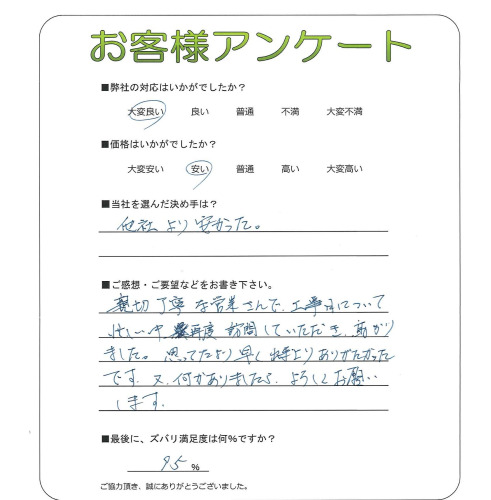 お客様アンケート
■弊社の対応はいかがでしたか？
大変良い 良い 普通 不満 大変不満
■価格はいかがでしたか？
大変安い 安い 普通 高い 大変高い
■当社を選んだ決め手は？
他社より安かった。
■ご感想・ご要望などをお書き下さい。
親切丁寧な営業さんで、工事について
忙しい中 再度 訪問していただき、助かり
ました。思ってたより早く ありがたかった
です。又、何かありましたら、よろしくお願い
します。
■最後に、ズバリ満足度は何％ですか？
95％
ご協力頂き、誠にありがとうございました。